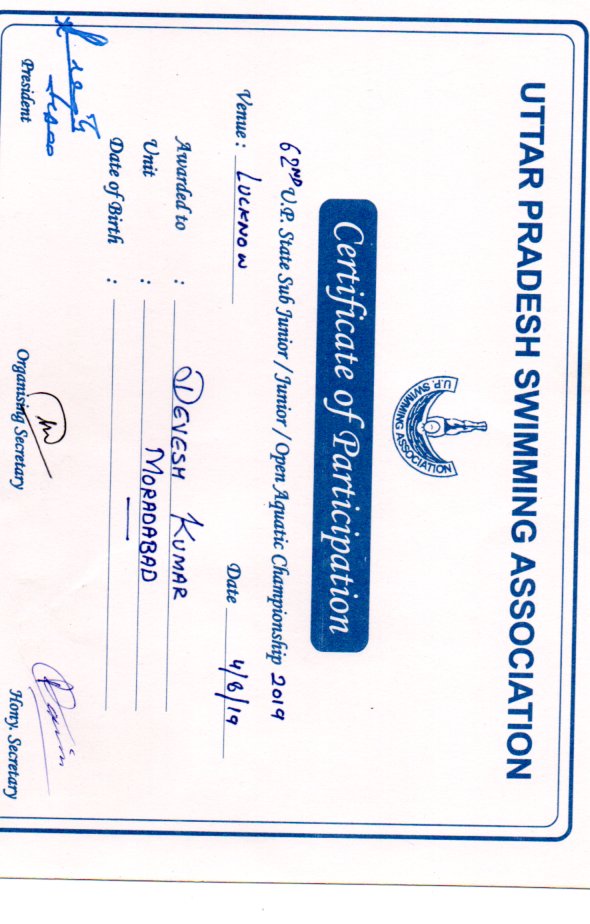 UTTAR PRADESH SWIMMING ASSOCIATION
U.P. SWIMMING ASSOCIATION
Certificate of Participation
62ND U.P. State Sub Junior / Junior / Open Aquatic Championship 2019
Venue : LUCKNOW Date 4/8/19
Awarded to : DEVESH KUMAR
Unit : MORADABAD
Date of Birth : —
President Organising Secretary Hony. Secretary